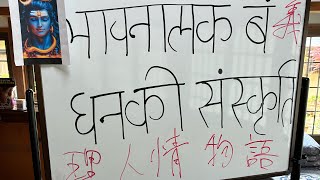 भावनात्मक बं
धनकी संस्कृति
義理人情物語